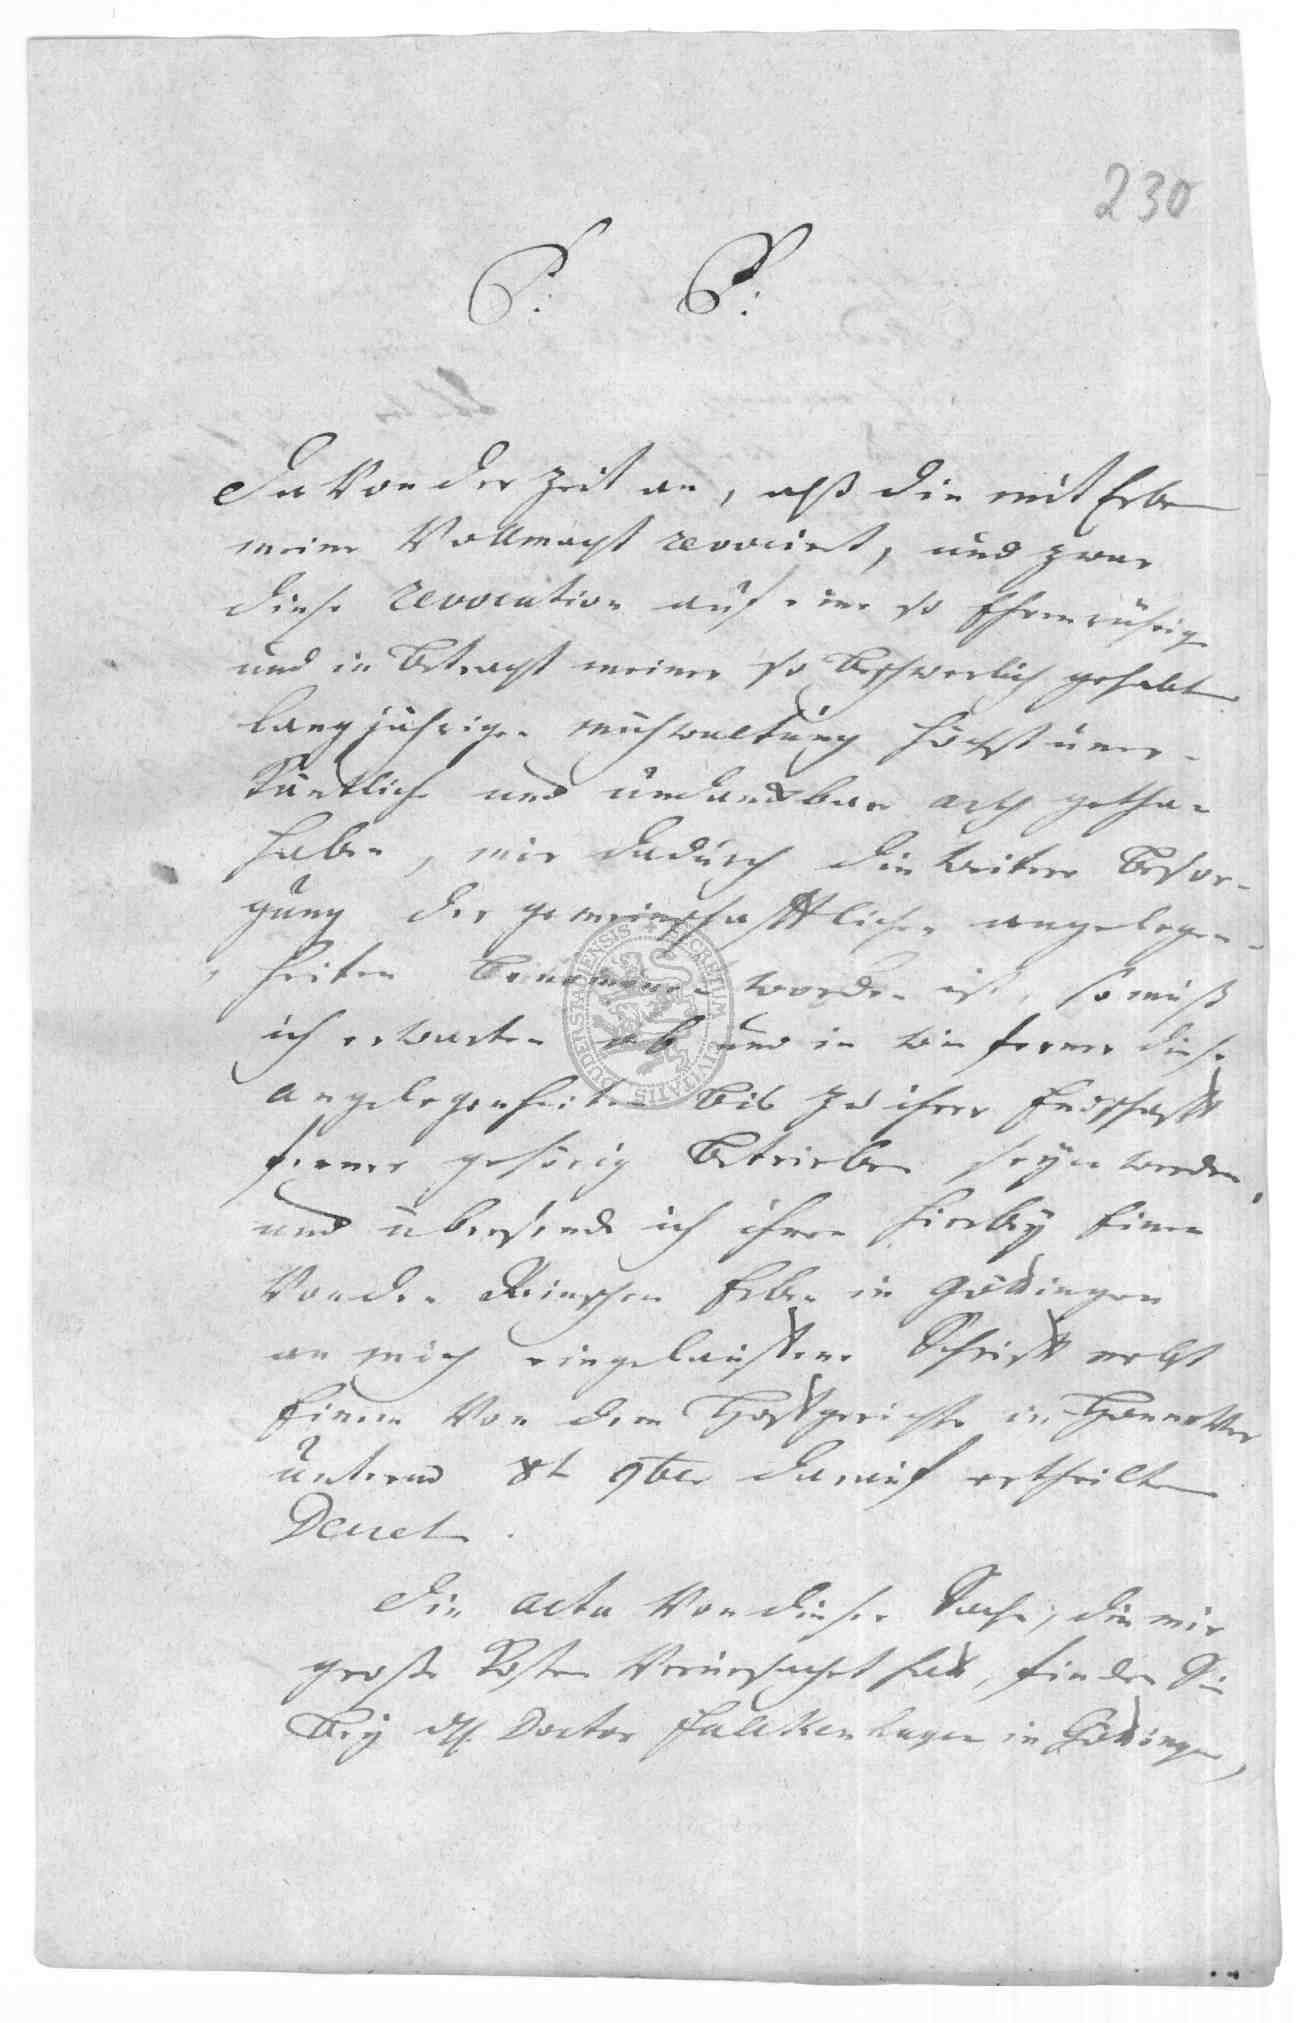 230
P: P:
Da Von der Zeit an, alß die mit Erben
meine Vollmacht revocirt, und zwar
diese revocation auf eine so Ehrenrührige
und in Betracht meiner so Beschwerlich gehabten
langjährigen mühwaltung höchst uner-
käntliche und undankbare arth gethan
haben, mir dadurch die weitere Besor-
gung der gemeinschafftlichen angelegen-
heiten Benommen worden ist, so muß
ich erwarten ob und in wie ferner diese
angelegenheiten Bis zu ihrer Endschafft
ferner gehörig Betrieben seyn werden,
und übersende ich ihnen hierbey Eine
Von den Erben in Göttingen
an mich eingelauffene Schrifft nebst
Einem Von dem Hoffgerichte in Hannover
unterm 8t 9ber darauf ertheilten
Decret.
Die acta Von dieser Sache, die mir
große Kosten Verursachet hatt, finden Sie
Bey H. Doctor Falckenhagen in Göttingen,
SECRETUM CIVITATIS DUDERSTADIENSIS